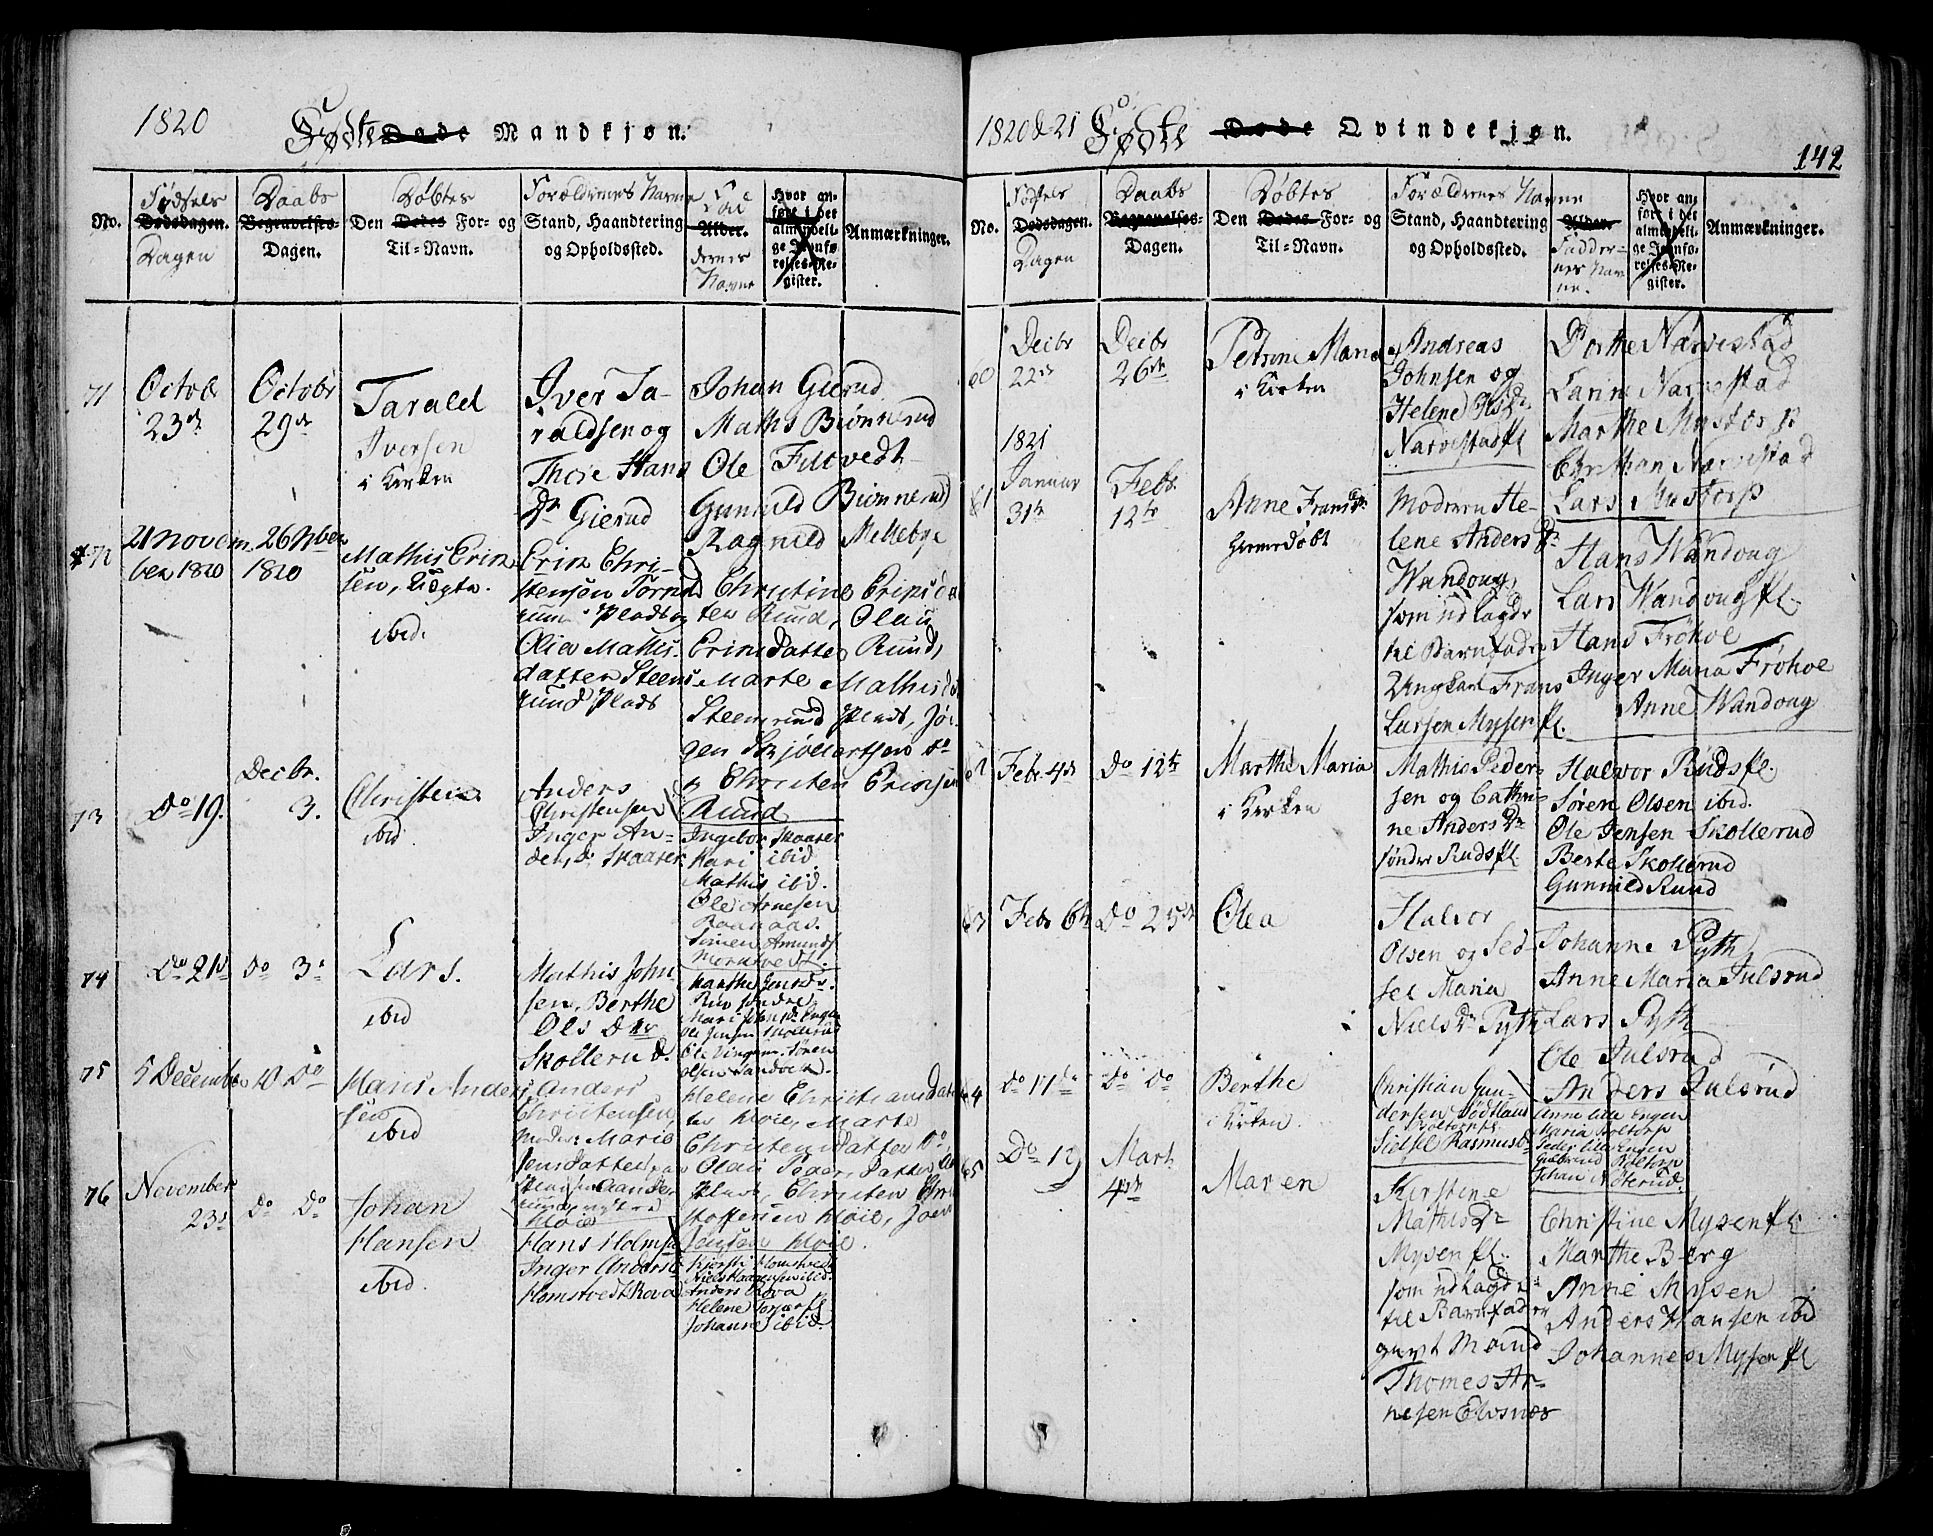 1820
Fødte Døde Mandkjøn.
No.
Fødsels
Dødsdagen.
Dagen
Daabs
Begravelses-
Dagen.
Døbtes
Den Dødes For- og
Til-Navn.
Forældrenes Navne
Stand, Haandtering
og Opholdssted.
Fad
Alder.
dernes
Navne
Hvor an-
ført i det
almindeli-
ge Jevnfø-
relses-Re-
gister.
Anmærkninger.
71
Octob
23de
Octobr
29de
Tarald
Iversen
i Kirken
Iver Ta-
raldsen og
Thore Hans
Dr Gierud
Johan Gierud
Maths Biønnerud
Ole Filtvedt
Gunnild Biønnerud
Ragnild Mellebye
72
21 Novem-
ber 1820
26 Nber
1820
Mathis Erik
sen,
ibid.
Erik Chri-
stensen
Plads og
Olia Mathis-
datter Steens
rund Plads
Christine Eriksdat
ter Ruud, Olaus
Eriksdatter Ruud,
Marte Mathisdr
Steensrund Plads, Jør
gen
Christen Eriksen
Ruud
73
Do 19.
Decbr.
3.
Christen
ibid.
Anders
Christensen
Inger An-
ders dr Skaarer
Ingebor Skaarer
Kari ibid.
Mathis ibid.
Ole Arnesen
Simen Amunds
74
Do 21de
Do 3.
Lars.
ibid
Mathis John
sen, Berthe
Ols Dtr
Skollerud.
Marthe
Ole Jensen Skollerud
Olsen Sandvik.
75
5 December
Do Do
Hans Anders
sen
ibid
Anders
Christensen,
Marie
Jensdatter
Høie
Helene Christiansdat
ter Høie, Marte
Christensdatter Do
Olava Peders Datter
Plads, Christen Chri
stoffersen Høie, Joen
Jensen Høie.
76
November
23de
Do Do
Johan
Hansen
ibid.
Hans Holmsen
Inger Anders
Homstvedt Kova
Kjersti Homstvedt
Anders Kova
Helene
Johanne ibid.
1820 & 21
Fødte Døde Qvindekjøn.
142
No.
Fødsels
Dødsdagen.
Dagen
Daabs
Begravelses-
Dagen.
Døbtes
Den Dødes For- og
Til-Navn.
Forældrenes Navne
Stand, Haandtering
og Opholdssted.
Alder.
Fadder-
nes Nav
ne.
Hvor an-
ført i det
almindeli-
ge Jevnfø-
relses-Re-
gister.
Anmærkninger.
60
Decbr
22de
Decbr
26de
Petrine Maria
i Kirken
Andreas
Johnsen og
Helene Ols Dr
Narvestad pl
Dorthe Narvestad
Karin Narvestad
Marthe Mustorp
Christian Narvestad
Lars Mustorp
61
1821
Januar
31te
Febr.
12te
Anne Frans Dr
hjemedøbt
Moderen He-
lene Anders Dr
Wandoug,
som udlagde
til Barnefader
Ungkarl Frans
Larsen Mysen pl.
Hans Wandoug
Lars Wandoug pl.
Hans Frøhoe
Inger Maria Frøhoe
Anne Wandoug
62
Febr. 4de
Do 12te
Marthe Maria
i Kirken
Mathis Peder-
sen og Cathri-
ne Anders Dr
søndre Ruds pl.
Halvor Ruds pl.
Søren Olsen ibid.
Ole Jensen Skollerud
Berte Skollerud
Gunnild Ruud
63
Febr 6te
Do 25de
Olea
Halvor
Olsen og Sed
sel Maria
Niels Dr Pyth
Johanne Pyth
Anne Maria Julsrud
Lars Pyth
Ole Julsrud
Anders Julsrud
64
Do 17de
Do Do
Berthe
i Kirken.
Christian Gun-
dersen
Sidsel Rasmusd
Anne lille Engen
Maria Soltorp
Peder lille Engen
Gulbrand Boltorp
65
Do 19
Marts
4de
Maren
Kirstine
Mathis Dr
Mysen pl.
som udlagde
til Barnefader
givt Mand
Thomes Ar-
nesen Elvsnes
Christine Mysen pl.
Marthe Berg
Anne Mysen
Anders Hansen ibid
Johannes Mysen pl